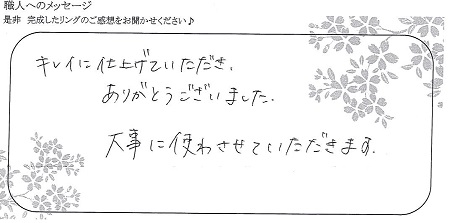 職人へのメッセージ
是非 完成したリングのご感想をお聞かせください♪
キレイに仕上げていただき、
ありがとうございました。
大事に使わさせていただきます。